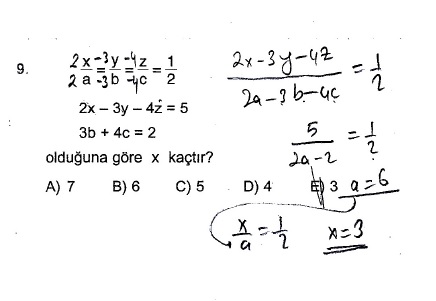 9. 2x/2a = -3y/-3b = -4z/-4c = 1/2
2x – 3y – 4z = 5
3b + 4c = 2
olduğuna göre x kaçtır?
A) 7 B) 6 C) 5 D) 4 E) 3
2x-3y-4z/2a-3b-4c = 1/2
5/2a-2 = 1/2
a=6
x/a = 1/2 x=3